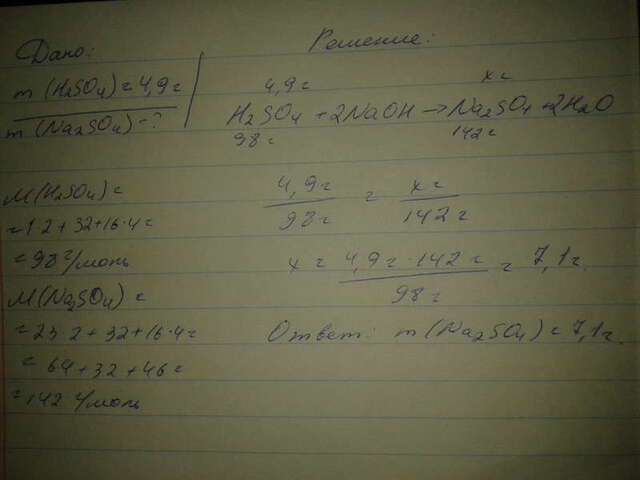 Дано:
m (H₂SO₄) = 4,9 г
m (Na₂SO₄) - ?
Решение:
4,9 г x г
H₂SO₄ + 2NaOH → Na₂SO₄ + 2H₂O
98 г 142 г
M(H₂SO₄) =
= 1·2 + 32 + 16·4 =
= 98 г/моль
M(Na₂SO₄) =
= 23·2 + 32 + 16·4 =
= 64 + 32 + 46 =
= 142 г/моль
4,9 г / 98 г = x г / 142 г
x = 4,9 г · 142 г / 98 г = 7,1 г.
Ответ: m (Na₂SO₄) = 7,1 г.